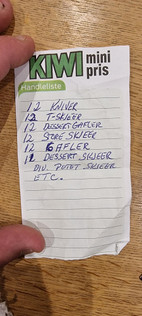 KIWI mini pris
Handleliste
12 KNIVER
12 T-SKJEER
12 DESSERT GAFLER
12 STORE SKJEER
12 GAFLER
12 DESSERT SKJEER
DIV. POTET SKJEER
ETC.